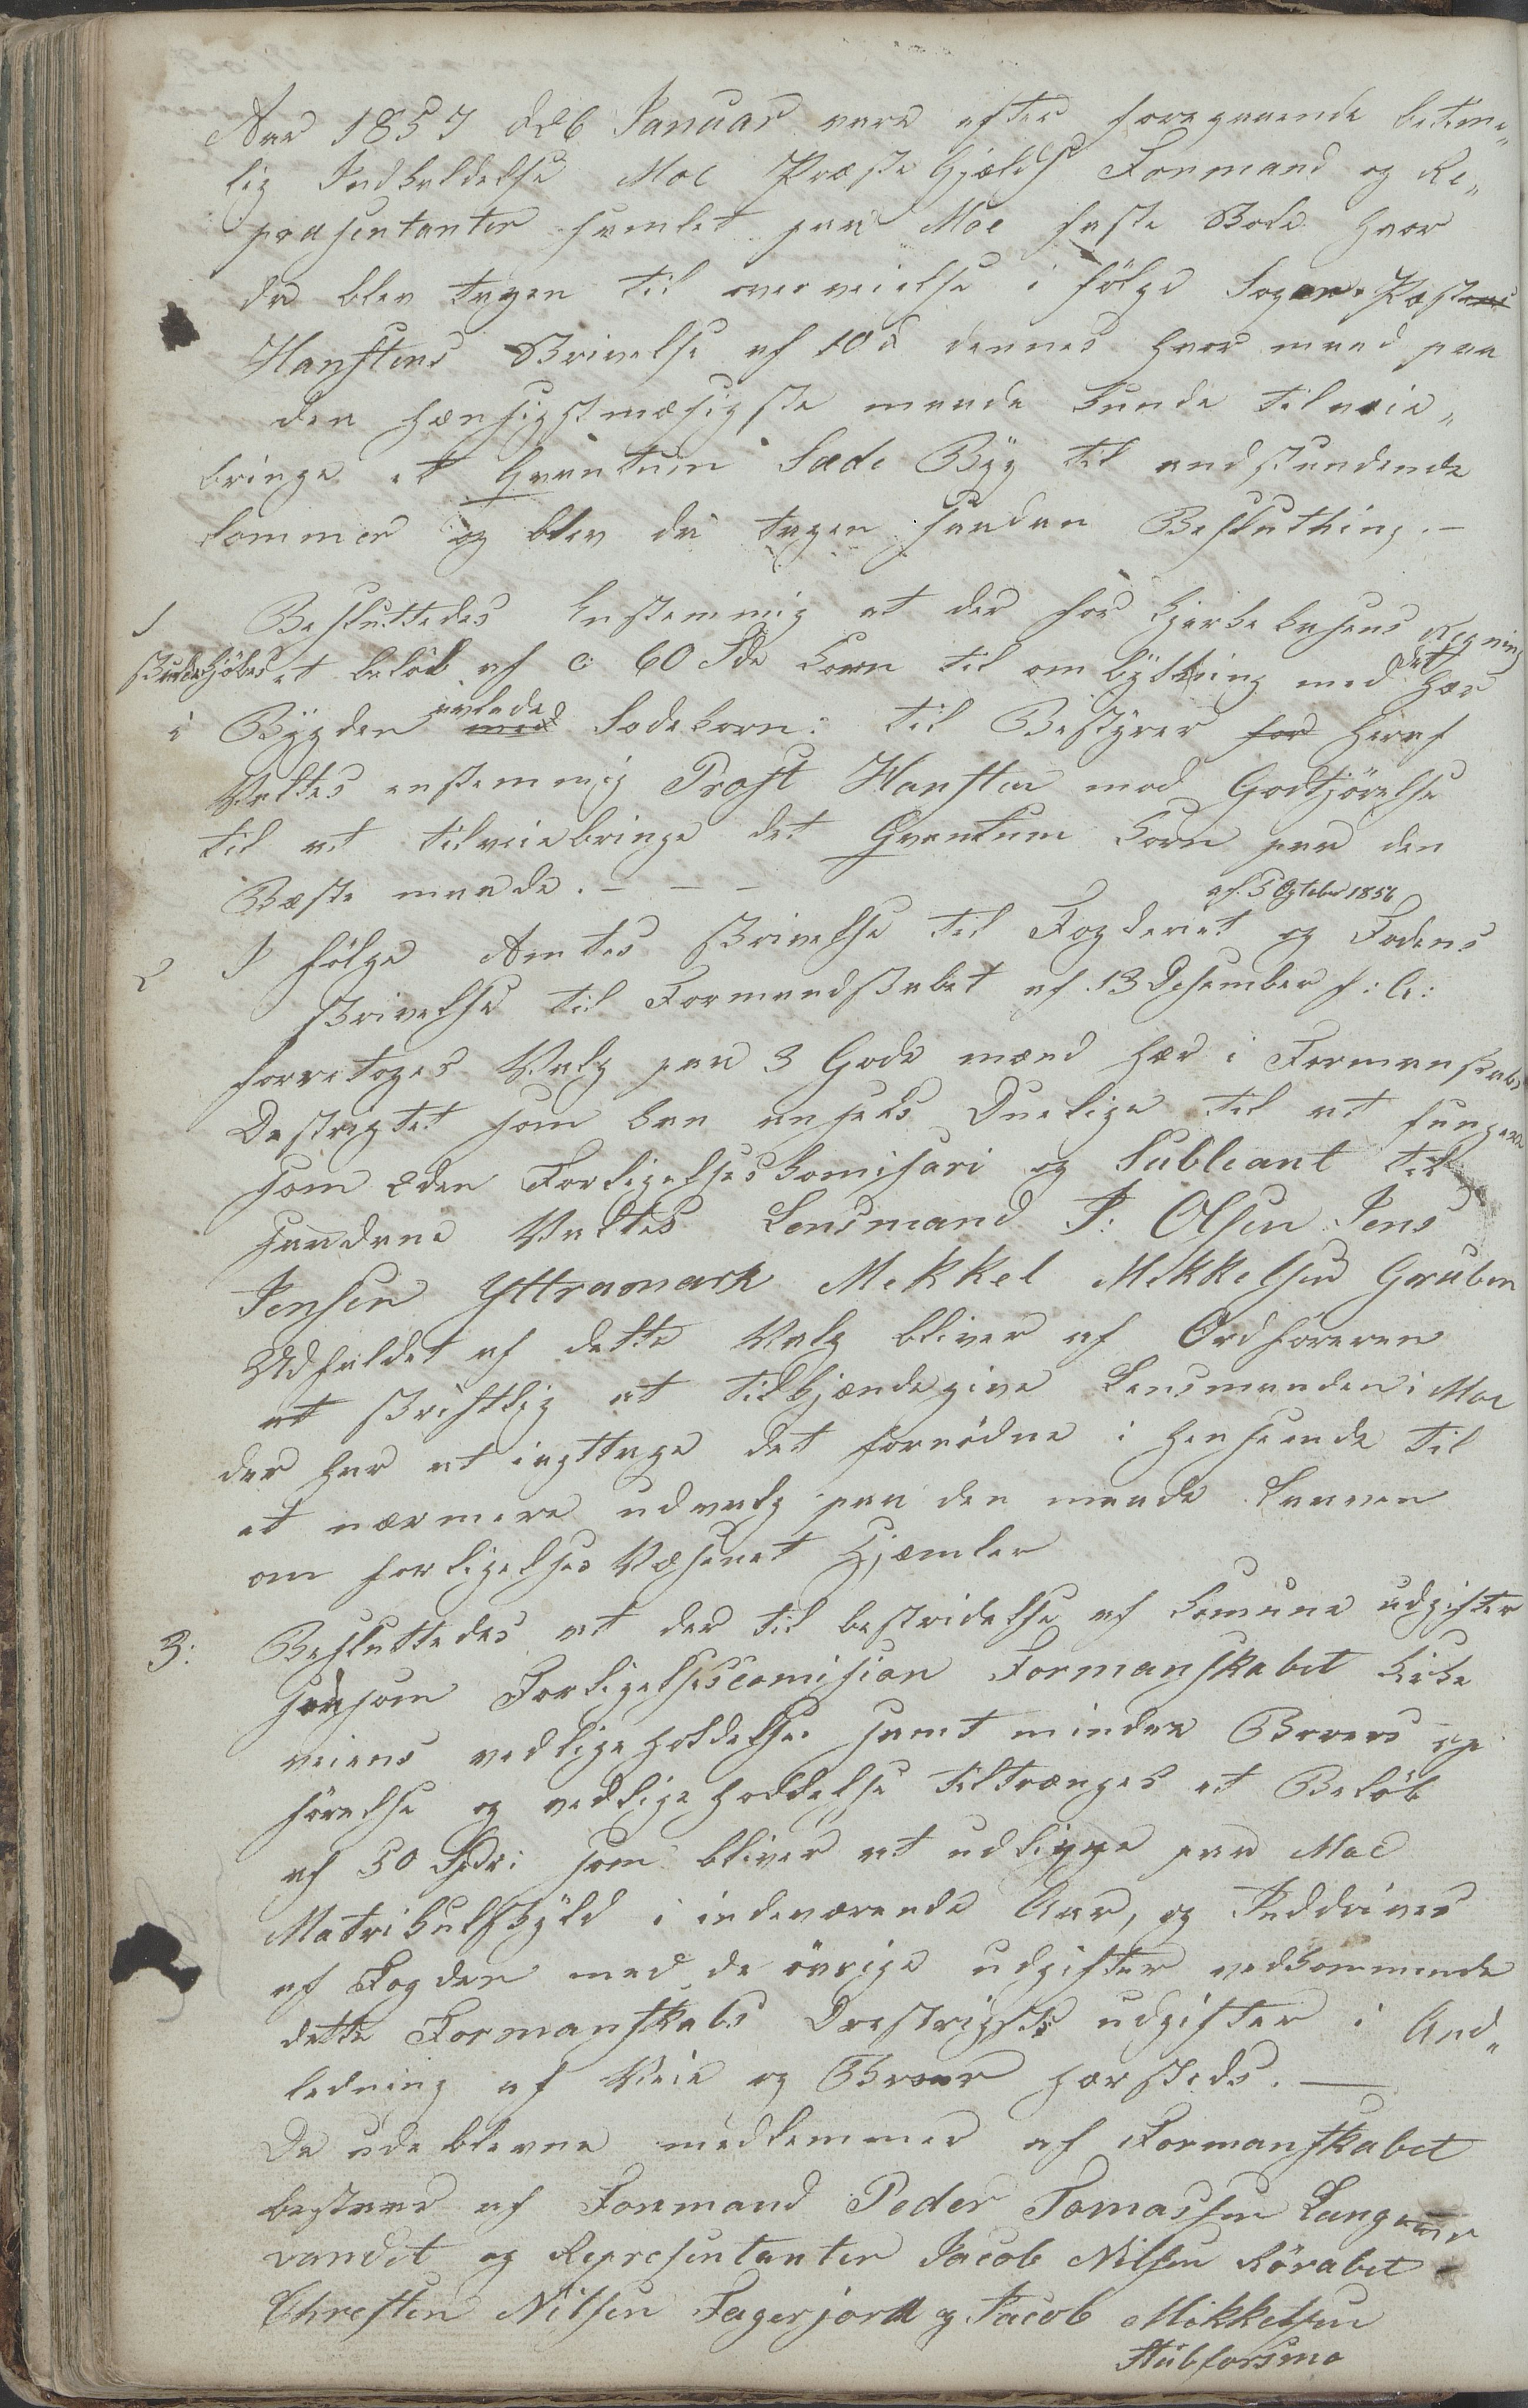 Aar 1857 dd 6 Januar vare efter foregaaende betime„
lig Indkaldelse Moe Præste Gjælds Formand og Re„
præsentanter samlet paa Moe faste Bole hvor
da blev tagen til overveielse i følge Sogne-Præst
Hanstens Skrivelse af 10d dennes hvor maad paa
den hænsigstmæsigste maade kunde tilveie„
bringe et Qvantum Sæde Byg til anstundende
Sommer og blev da tagen saadan Beslutning. –
1 Besluttedes Enstemmig at der for Kjerkekasens Regning
skulde kjøbes et beløb af c 60 Sde Korn til ombytning med det hær
i Bygden avlede med Sædekorn: til Bestyrer for heraf
Valtes enstemmig Prost Hansten mod Godtjørelse
til at tilveiebringe det Qvantum Korn paa den
Bæste maade. – – –
af 5 Ogtober 1856
2 I følge Amtes Skrivelse til Fogderiet og Fodens
skrivelse til Formandskabet af 13 Desember f: A:
forretoges Valg paa 3 Gode mænd hær i Formanskabs
Destrigtet som kan ansees Duelige til at fungere
som 2den Forligelseskomisari og Subleant til
saadane Valtes Lensmand P: Olsen Jens
Jensen Yttramark Mekkel Mikkelsen Gruben
Udfaldet af dette Valg bliver af Ordføreren
at skriftlig at tilkjændegive Lensmanden i Moe
der har at iagttage det fornødne i henseende til
et nærmere udvalg paa den maade Laaven
om forligelses Væsenet Hjæmler
3: Besluttedes at der til bestridelse af Komune udgifter
saasom Forligelsescomision Formanskabet Kirke
veiens vedligeholdelse samt mindre Broers op
førelse og vedligeholdelse tiltrænges et Beløb
af 50 Spdr: som bliver at udligge paa Moe
Matrikulskyld i indeværende Aar, og Inddrives
af Fogden med de øvrige udgifter vedkommende
dette Formanskabs Destrigts udgifter i And„
ledning af Veie og Broer hærsteds. –
De udeblevne medlemmer af Formanskabet
bestaar af Formand Peder Tomassen Lang
vandet og Representanter Jacob Nilsen Rørabet
Chresten Nilsen Fagerjord og Jacob Mikkelsen
Stubforsmo